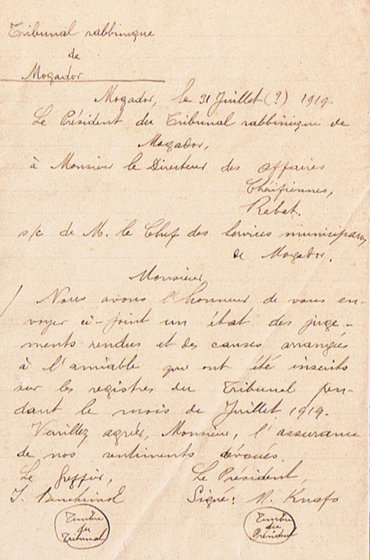 Tribunal rabbinique
de
Mogador
Mogador, le 31 Juillet (?) 1919.
Le Président du Tribunal rabbinique de
Mogador,
à Monsieur le Directeur des affaires
Chérifiennes,
Rabat.
s/c de M. le Chef des Services municipaux
de Mogador.
Monsieur
Nous avons l'honneur de vous en-
voyer ci-joint un état des juge-
ments rendus et des causes arrangées
à l'amiable qui ont été inscrits
sur les registres du Tribunal pen-
dant le mois de Juillet 1919.
Veuillez agréer, Monsieur, l'assurance
de nos sentiments dévoués.
Le Greffier, Le Président,
J. Bencheinol Signé: M. Knafo
Timbre du Tribunal Timbre du Président